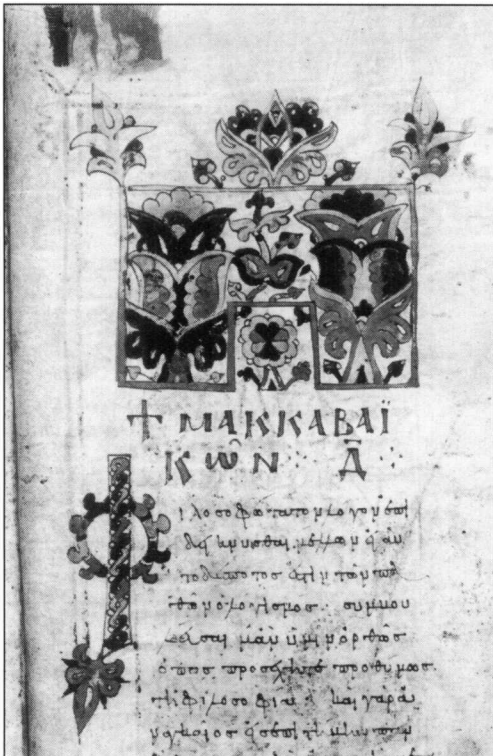 † ΜΑΚΚΑΒΑΪ
ΚῶΝ Δ̄
Φιλοσοφώτατον λόγον ἐπι
δείκνυσθαι μέλλων εἰ αὐ
τοδέσποτός ἐστιν τῶν πα
θῶν ὁ λογισμός· συμβου
λεύσαιμ' ἂν ὑμῖν ὀρθῶς
ὅπως προσέχητε προθύμως
τῇ φιλοσοφίᾳ· καὶ γὰρ ἀ
ναγκαῖος